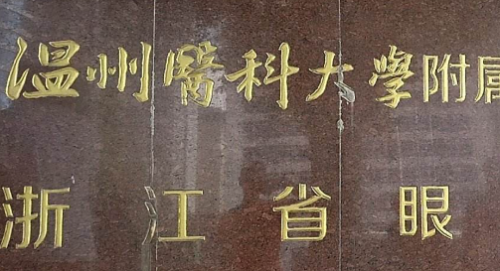 温州醫科大學附属
浙江省眼